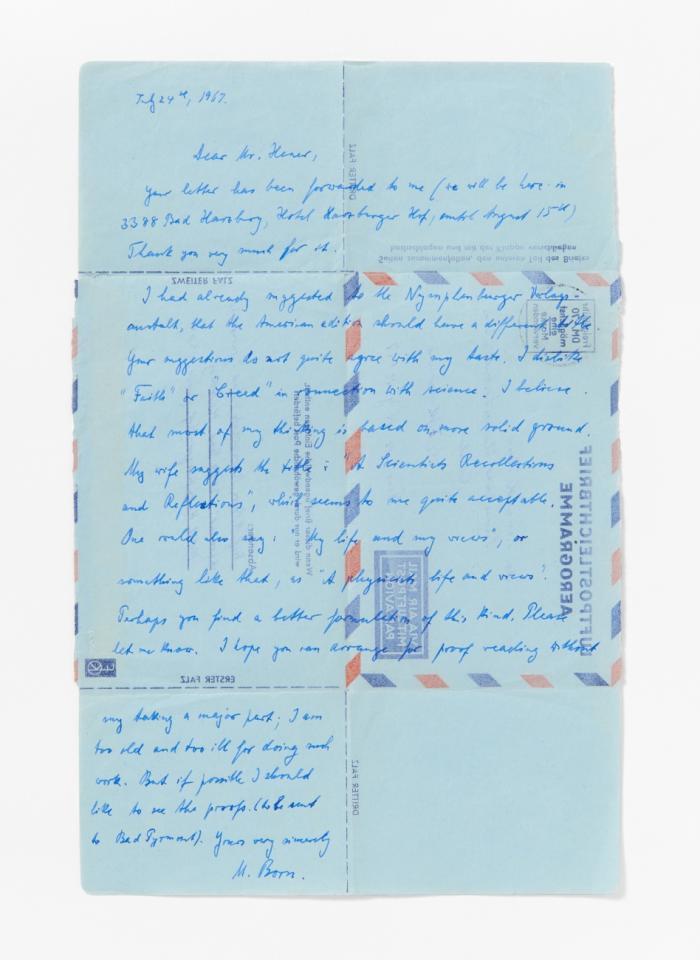 July 24th, 1967.
Dear Mr. Hener,
Your letter has been forwarded to me (we will be here in
3388 Bad Harzburg, Hotel Harzburger Hof, until August 15th)
Thank you very much for it.
I had already suggested to the Nymphenburger Verlags
anstalt, that the American edition should have a different title
Your suggestions do not quite agree with my taste. I dislike
"Faith" or "Creed" in connection with science. I believe
that most of my thinking is based on more solid ground.
My wife suggests the title: "A Scientists Recollections
and Reflections", which seems to me quite acceptable.
One could also say: "My life and my views", or
something like that, as "A physicists life and views".
Perhaps you find a better formulation of this kind. Please
let me know. I hope you can arrange for proof reading without
my taking a major part; I am
too old and too ill for doing such
work. But if possible I should
like to see the proofs. (to be sent
to Bad Pyrmont). Yours very sincerely
M. Born.
DRITTER FALZ
ZWEITER FALZ
LUFTPOSTLEICHTBRIEF
AEROGRAMME
MIT LUFTPOST
PAR AVION
BY AIR MAIL
Absender:
ERSTER FALZ
DRITTER FALZ